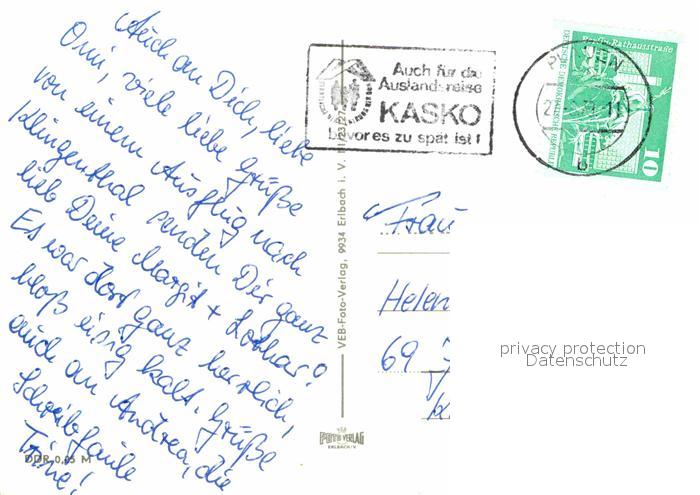 Auch an Dich, liebe
Omi, viele liebe Grüße
von einem Ausflug nach
Klingenthal senden Dir ganz
lieb Deine Margit + Lothar!
Es war dort ganz herrlich,
bloß eisig kalt. Grüße
auch an Andrea, die
schreibfaule
Trine!
DDR 0,05 M
VEB-Foto-Verlag, 9934 Erlbach i. V.
FOTO VERLAG
ERLBACH/V.
Auch für die
Auslandsreise
KASKO
bevor es zu spät ist!
Berlin·Rathausstraße
DEUTSCHE DEMOKRATISCHE REPUBLIK
10
Frau
Helen
69
privacy protection
Datenschutz